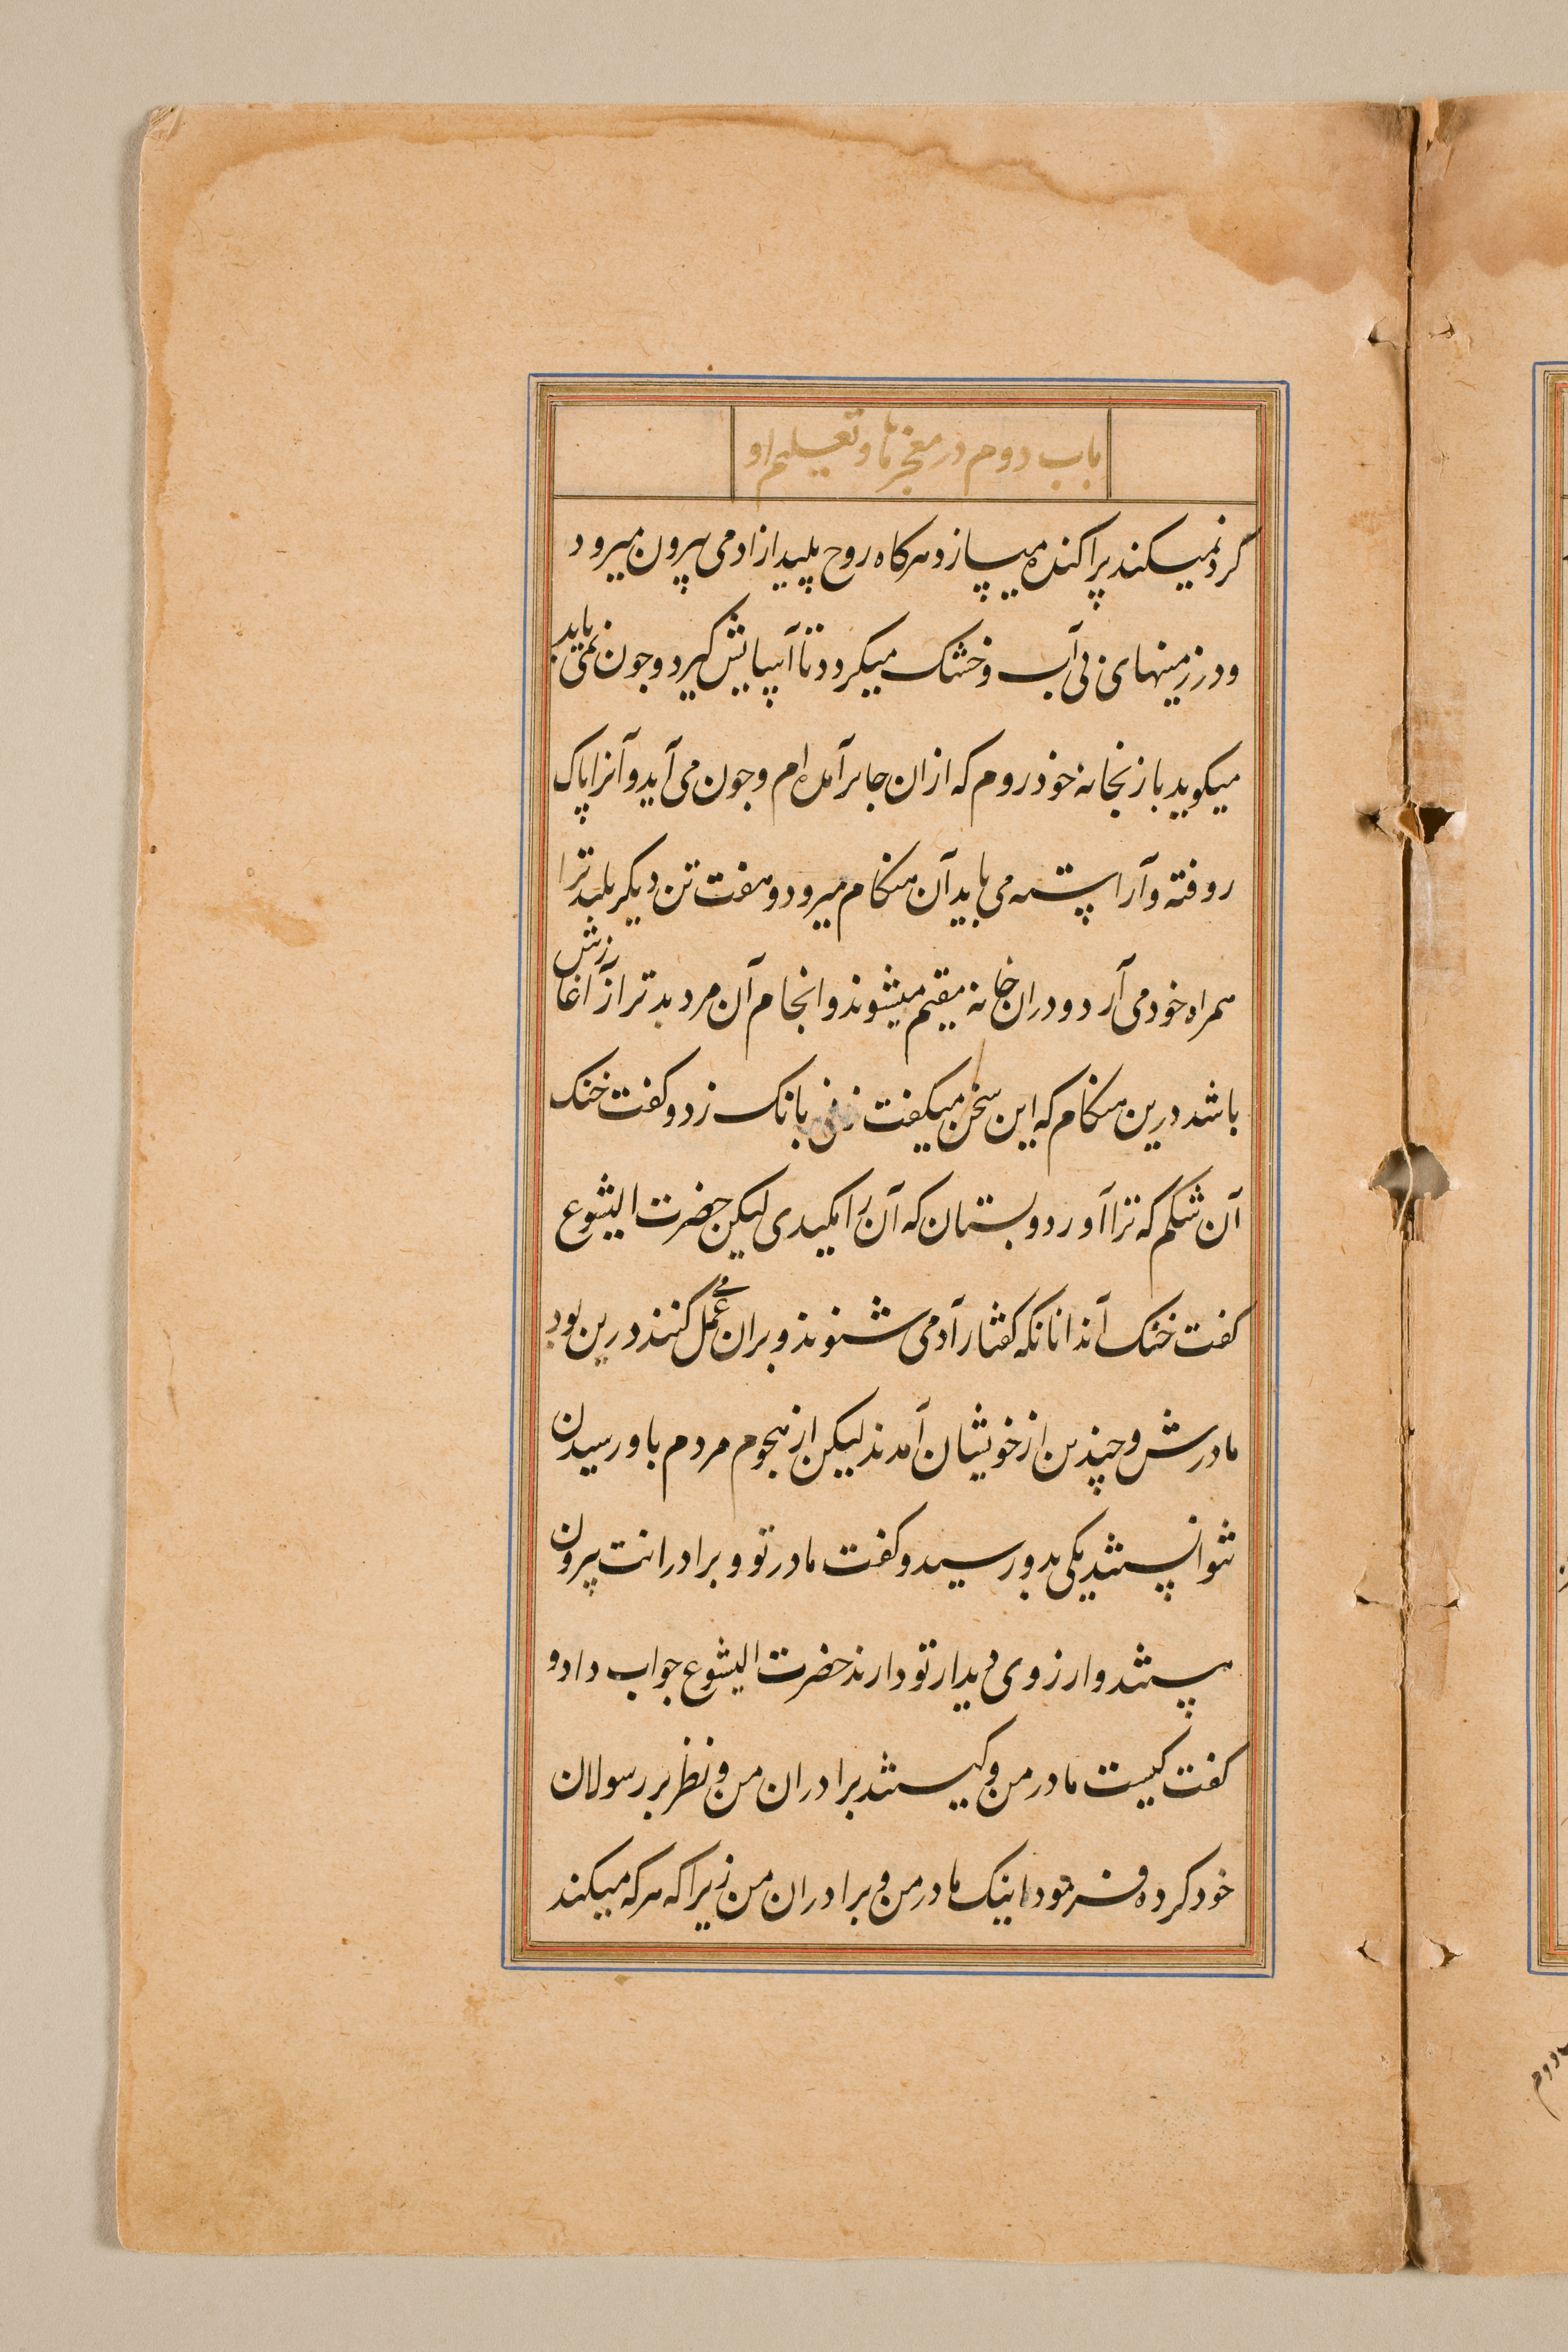 باب دوم در معجزها و تعلیم او
کرد نمیکند پراکنده میسازد و هرکاه روح پلید از ادمی بیرون میرود
و در زمینهای بی آب و خشک میکردد تا آسایش کیرد و جون نمی یابد
میکوید باز بخانه خود روم که ازان جا برآمده ام و جون می آید و آنرا پاک
روفته و آراسته می یابد آن هنکام میرود و هفت تن دیکر پلید ترا
همراه خود می آرد و دران خانه مقیم میشوند و انجام آن مرد بدتر از آغازش
باشد درین هنکام که این سخن میکفت زنی بانک زد و کفت خنک
آن شکم که ترا آورد و بستان که آن را مکیدی لیکن حضرت ایشوع
کفت خنک آنانکه کفتار آدمی شنوند و بران عمل می کنند درین بود
مادرش و چندین از خویشان آمدند لیکن از هجوم مردم باو رسیدن
نتوانستند یکی بدو رسید و کفت مادر تو و برادرانت بیرون
هستند و ارزوی دیدار تو دارند حضرت ایشوع جواب داد و
کفت کیست مادر من و کیستند برادران من و نظر بر رسولان
خود کرده فرمود اینک مادر من و برادران من زیرا که هر که میکند